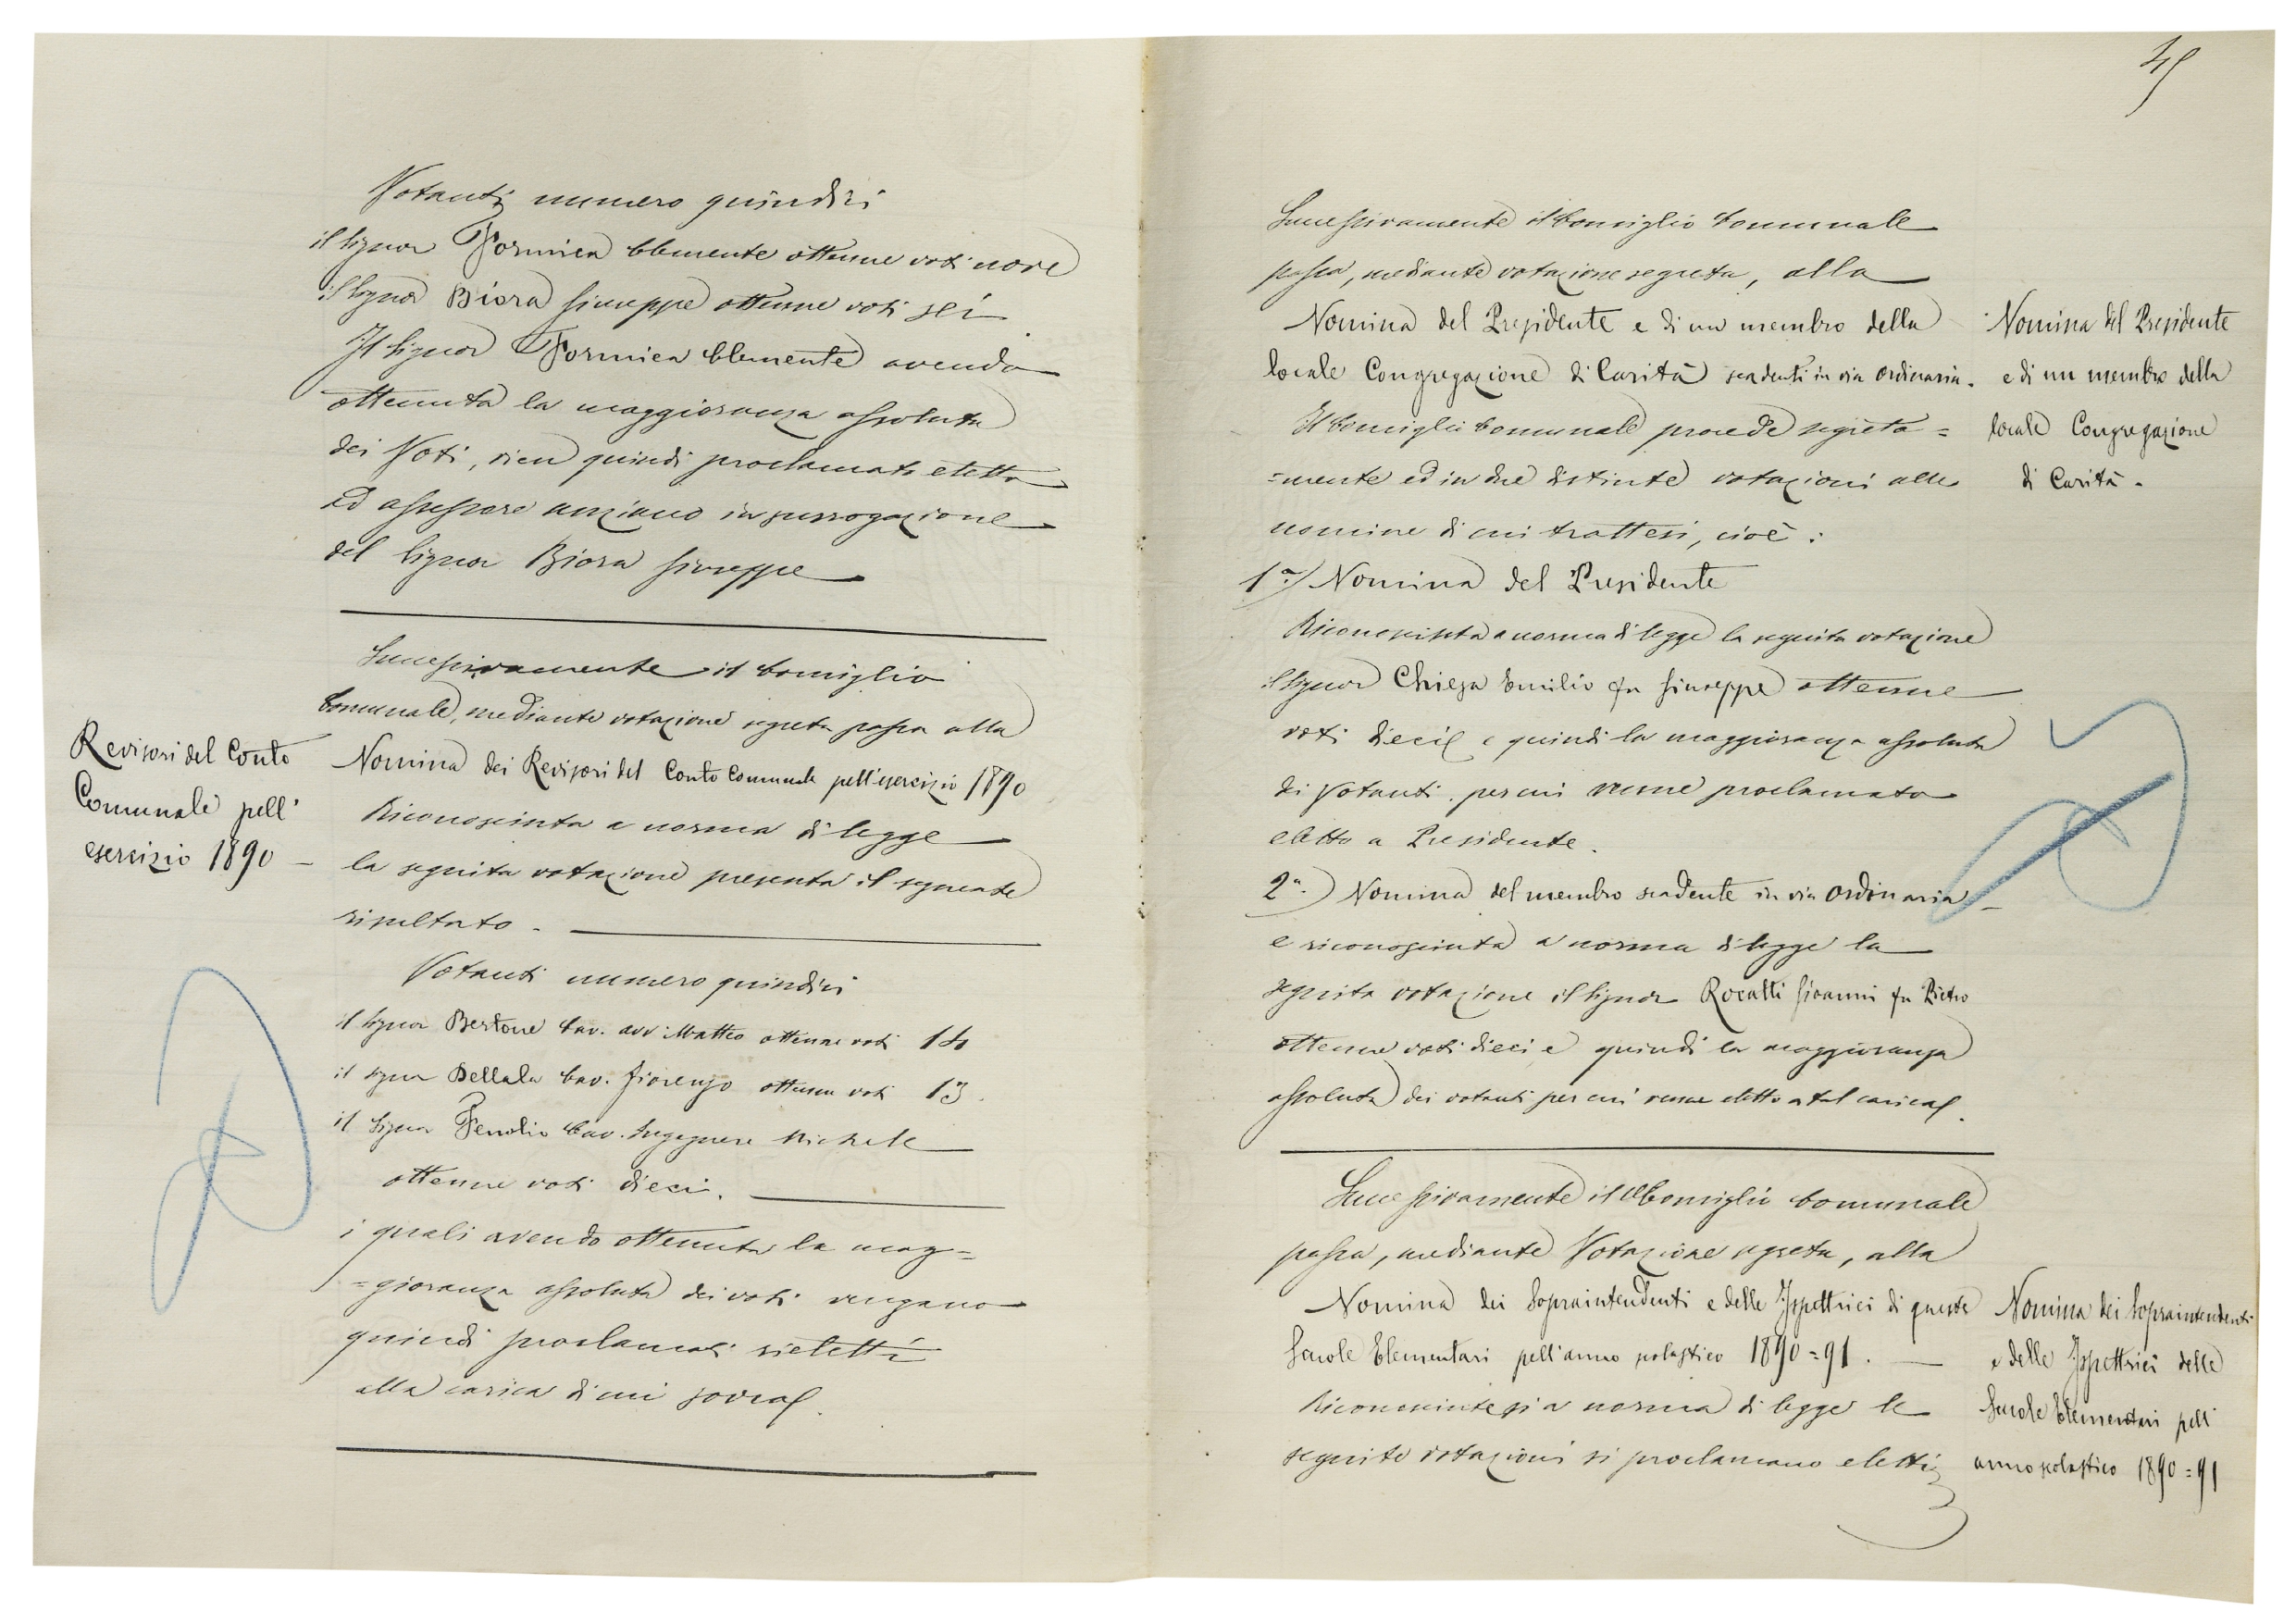 Votanti numero quindici
il Signor Formica Clemente ottenne voti nove
il Signor Biora Giuseppe ottenne voti sei
Il Signor Formica Clemente avendo
ottenuta la maggioranza assoluta
dei Voti, vien quindi proclamato eletto
ad assessore anziano in surrogazione
del Signor Biora Giuseppe
Successivamente il Consiglio
Comunale, mediante votazione segreta passa alla
Revisori del Conto
Comunale pell'
esercizio 1890 -
Nomina dei Revisori del Conto Comunale pell'esercizio 1890
Riconosciuta a norma di legge
la seguita votazione presenta il seguente
risultato -
Votanti numero quindici
il Signor Bertone Cav. avv. Matteo ottenne voti 14
il Signor Dellala Cav. Fiorenzo ottenne voti 13.
il Signor Fenolio Cav. Ingegnere Michele
ottenne voti dieci.
i quali avendo ottenuta la mag=
=gioranza assoluta dei voti vengano
quindi proclamati rieletti
alla carica di cui sovra.
45
Successivamente il Consiglio Comunale
passa, mediante votazione segreta, alla
Nomina del Presidente e di un membro della
locale Congregazione di Carità scadenti in via ordinaria.
Nomina del Presidente
e di un membro della
locale Congregazione
di Carità.
Il Consiglio Comunale procede segreta=
=mente ed in due distinte votazioni alle
nomine di cui trattasi, cioè:
1ª) Nomina del Presidente
Riconosciuta a norma di legge la seguita votazione
il Signor Chiesa Emilio fu Giuseppe ottenne
voti dieci e quindi la maggioranza assoluta
di Votanti, per cui venne proclamato
eletto a Presidente.
2ª.) Nomina del membro scadente in via ordinaria -
e riconosciuta a norma di legge la
seguita votazione il Signor Rocatti Giovanni fu Pietro
ottenne voti dieci e quindi la maggioranza
assoluta dei votanti per cui venne eletto a tal carica.
Successivamente il Consiglio Comunale
passa, mediante Votazione segreta, alla
Nomina dei Sopraintendenti e delle Ispettrici di queste
Scuole Elementari pell'anno scolastico 1890=91. -
Nomina dei Sopraintendenti
e delle Ispettrici delle
Scuole Elementari pell'
anno scolastico 1890=91
Riconosciutesi a norma di legge le
seguite votazioni si proclamano eletti